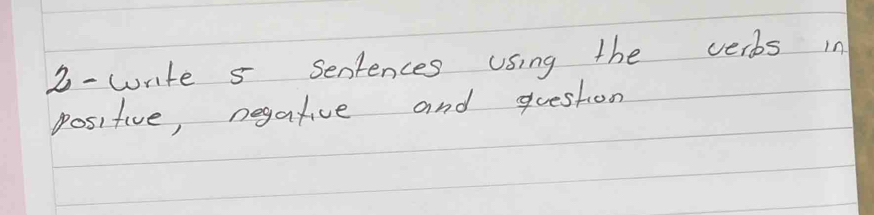 2- write 5 sentences using the verbs in
positive, negative and question